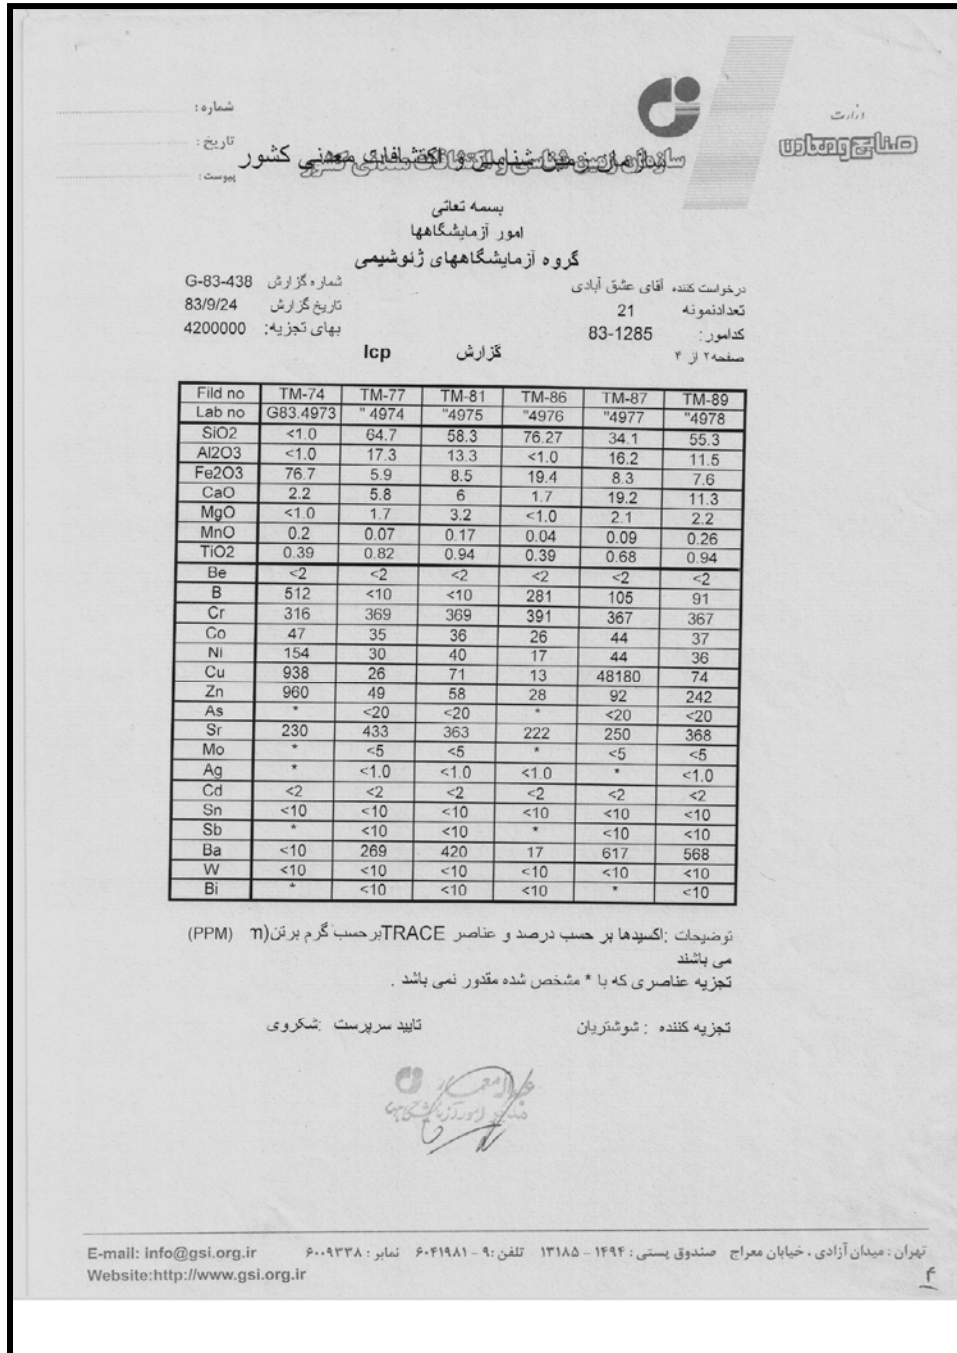 وزارت
صنایع و معادن
شماره :
تاریخ :
پیوست :
سازمان زمین شناسی و اکتشافات معدنی کشور
بسمه تعالی
امور آزمایشگاهها
گروه آزمایشگاههای ژئوشیمی
درخواست کننده آقای عشق آبادی شماره گزارش G-83-438
تعدادنمونه 21 تاریخ گزارش 83/9/24
کدامور: 83-1285 بهای تجزیه: 4200000
صفحه۲ از ۴ گزارش Icp
Fild no TM-74 TM-77 TM-81 TM-86 TM-87 TM-89
Lab no G83.4973 " 4974 "4975 "4976 "4977 "4978
SiO2 <1.0 64.7 58.3 76.27 34.1 55.3
Al2O3 <1.0 17.3 13.3 <1.0 16.2 11.5
Fe2O3 76.7 5.9 8.5 19.4 8.3 7.6
CaO 2.2 5.8 6 1.7 19.2 11.3
MgO <1.0 1.7 3.2 <1.0 2.1 2.2
MnO 0.2 0.07 0.17 0.04 0.09 0.26
TiO2 0.39 0.82 0.94 0.39 0.68 0.94
Be <2 <2 <2 <2 <2 <2
B 512 <10 <10 281 105 91
Cr 316 369 369 391 367 367
Co 47 35 36 26 44 37
Ni 154 30 40 17 44 36
Cu 938 26 71 13 48180 74
Zn 960 49 58 28 92 242
As * <20 <20 * <20 <20
Sr 230 433 363 222 250 368
Mo * <5 <5 * <5 <5
Ag * <1.0 <1.0 <1.0 * <1.0
Cd <2 <2 <2 <2 <2 <2
Sn <10 <10 <10 <10 <10 <10
Sb * <10 <10 * <10 <10
Ba <10 269 420 17 617 568
W <10 <10 <10 <10 <10 <10
Bi * <10 <10 <10 * <10
توضیحات :اکسیدها بر حسب درصد و عناصر TRACEبرحسب گرم برتن(m (PPM)
می باشند
تجزیه عناصری که با * مشخص شده مقدور نمی باشد .
تجزیه کننده : شوشتریان تایید سرپرست :شکروی
تهران : میدان آزادی ، خیابان معراج صندوق پستی : ۱۴۹۴ - ۱۳۱۸۵ تلفن :۹ - ۶۰۴۱۹۸۱ نمابر : ۶۰۰۹۳۳۸ E-mail: info@gsi.org.ir
Website:http://www.gsi.org.ir
۴